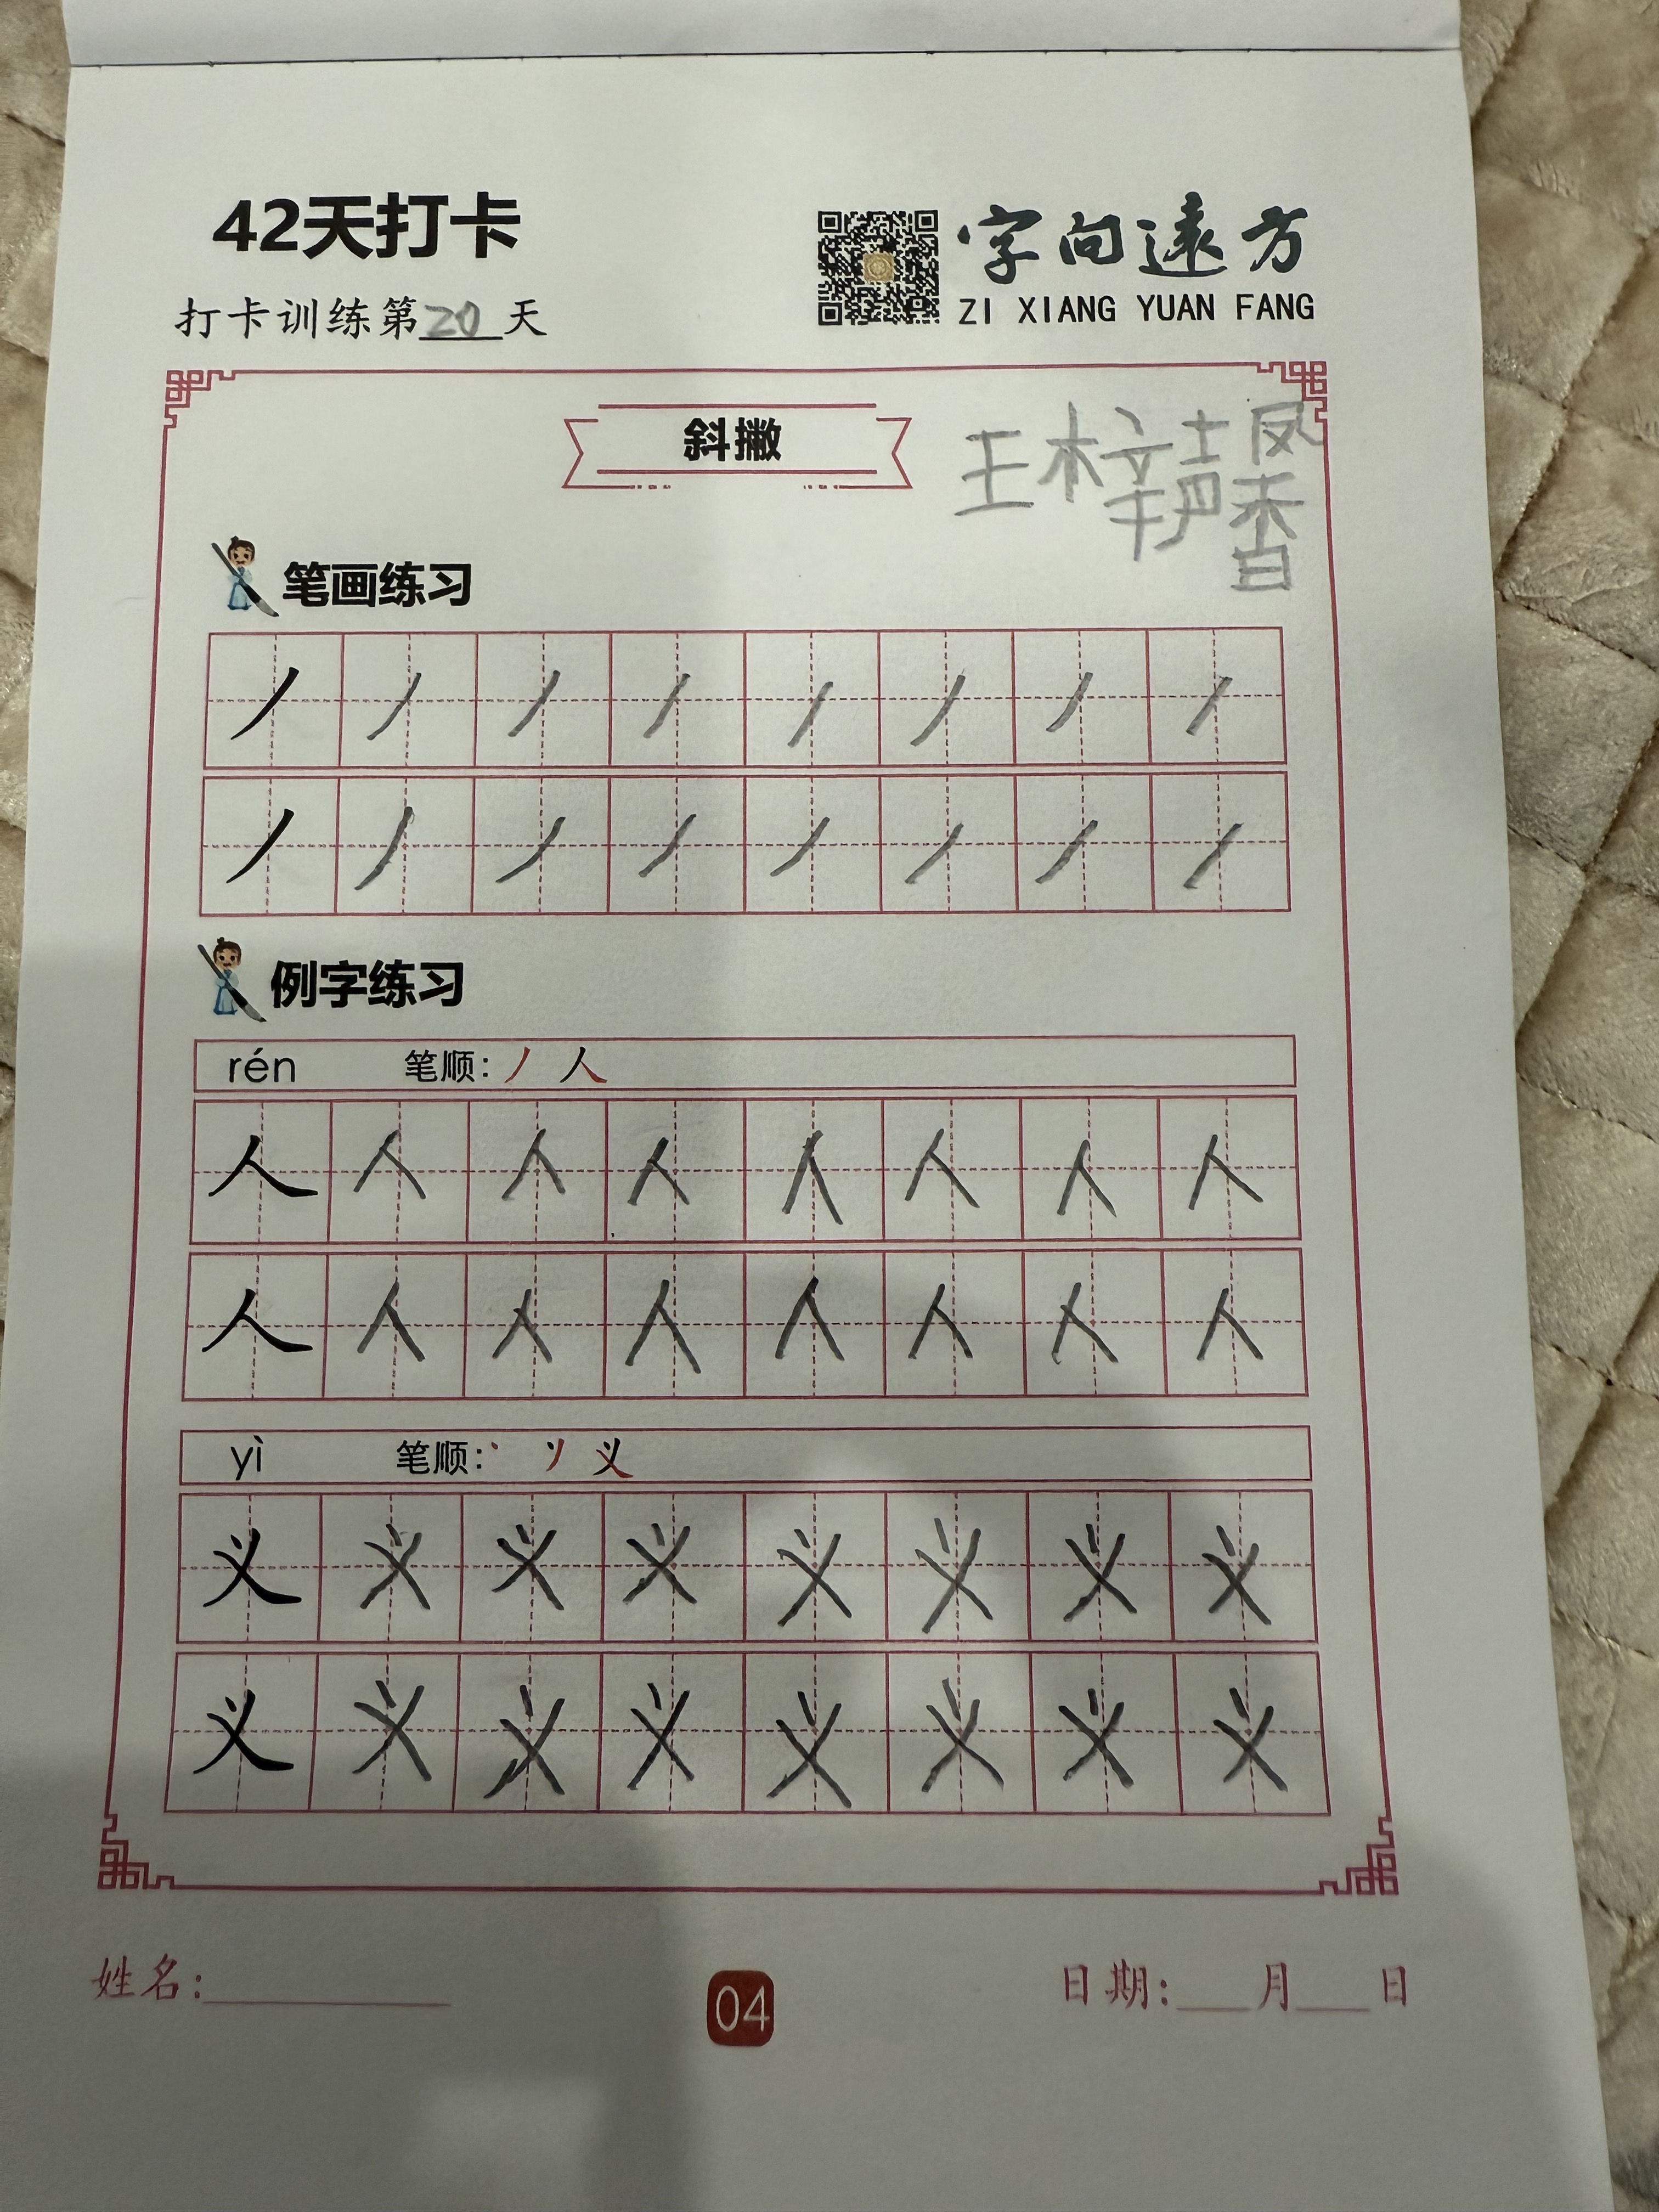 42天打卡
字向遠方
打卡训练第20天
ZI XIANG YUAN FANG
斜撇
王梓馨
笔画练习
丿丿丿丿丿丿丿丿
丿丿丿丿丿丿丿丿
例字练习
rén 笔顺:丿 人
人人人人人人人人
人人人人人人人人
yì 笔顺:丶 丷 义
义义义义义义义义
义义义义义义义义
姓名:
04
日期:___月___日